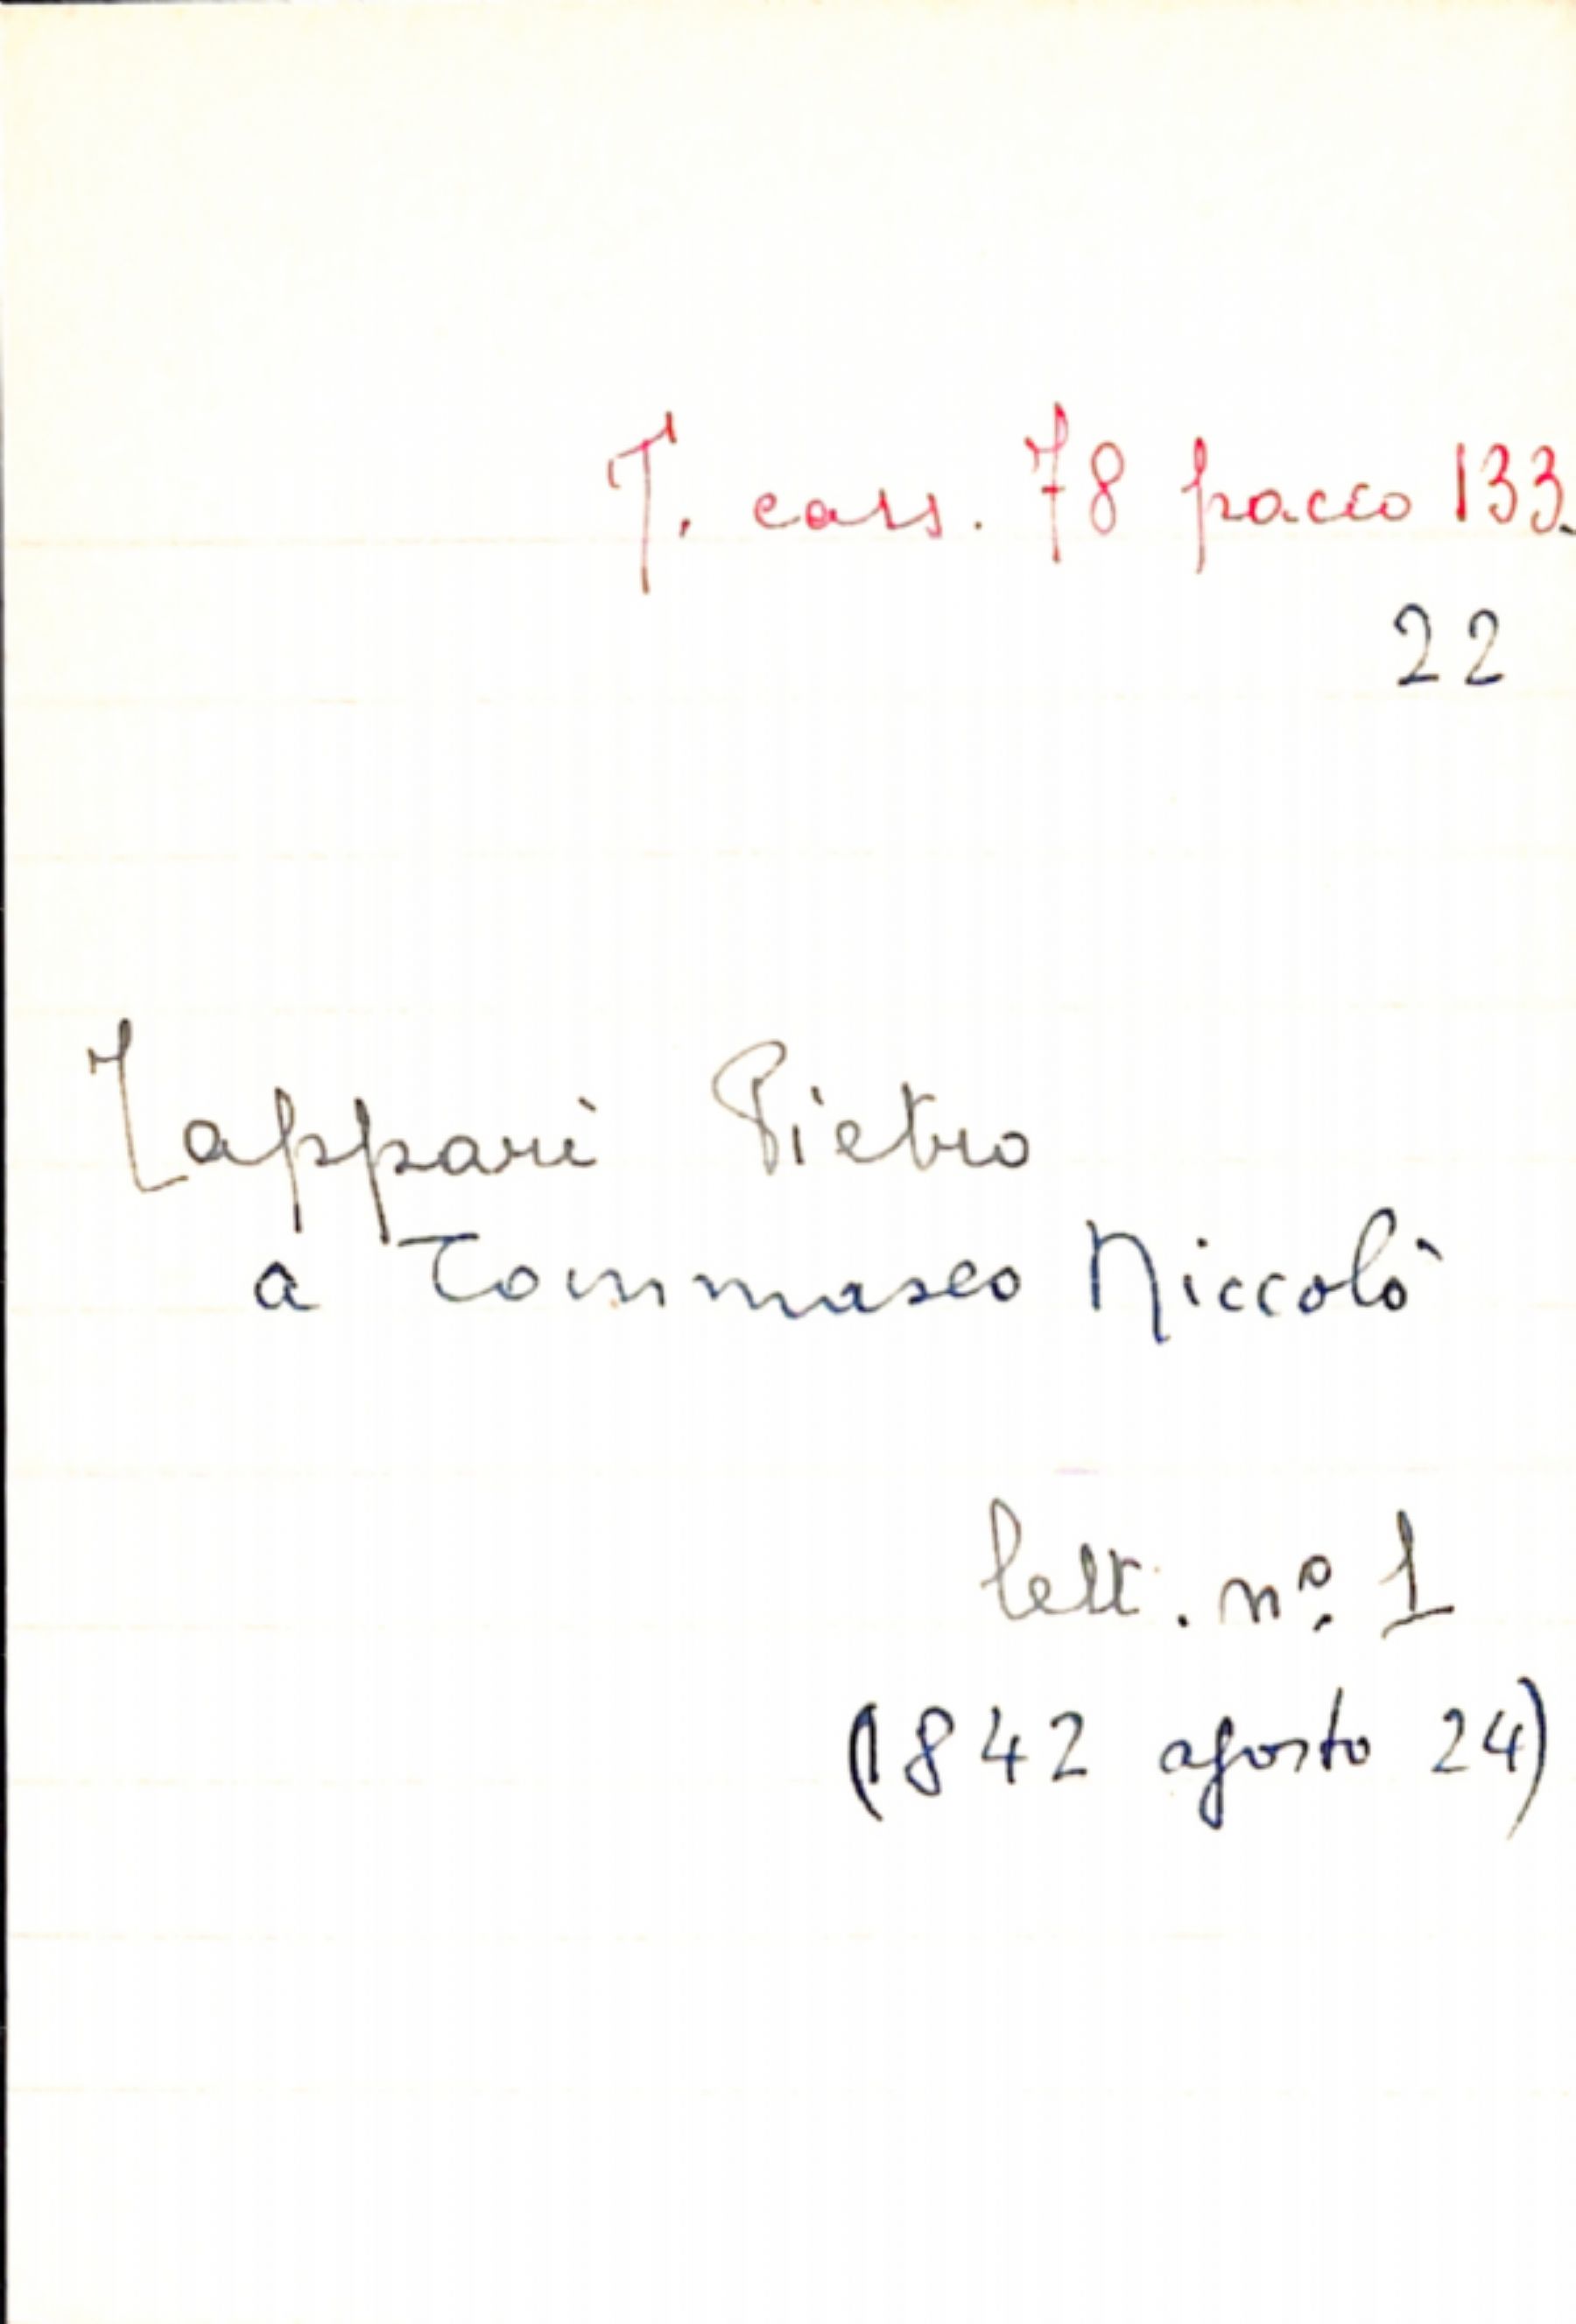 T. cass. 78 pacco 133.
22
Zappari Pietro
a Tommaseo Niccolò
lett. nº 1
(1842 agosto 24)